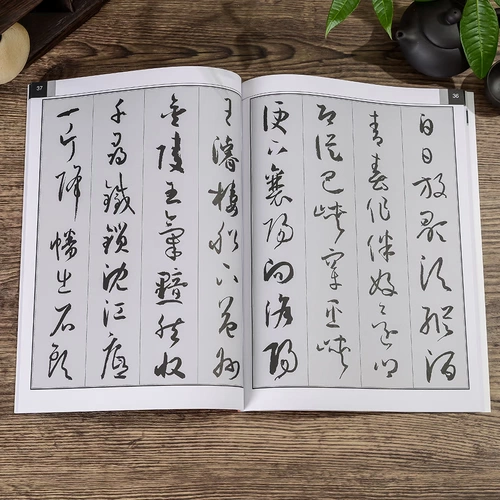 36
白日放歌須縱酒
青春作伴好還鄉
即從巴峽穿巫峽
便下襄陽向洛陽
37
王濬樓船下益州
金陵王氣黯然收
千尋鐵鎖沈江底
一片降幡出石頭